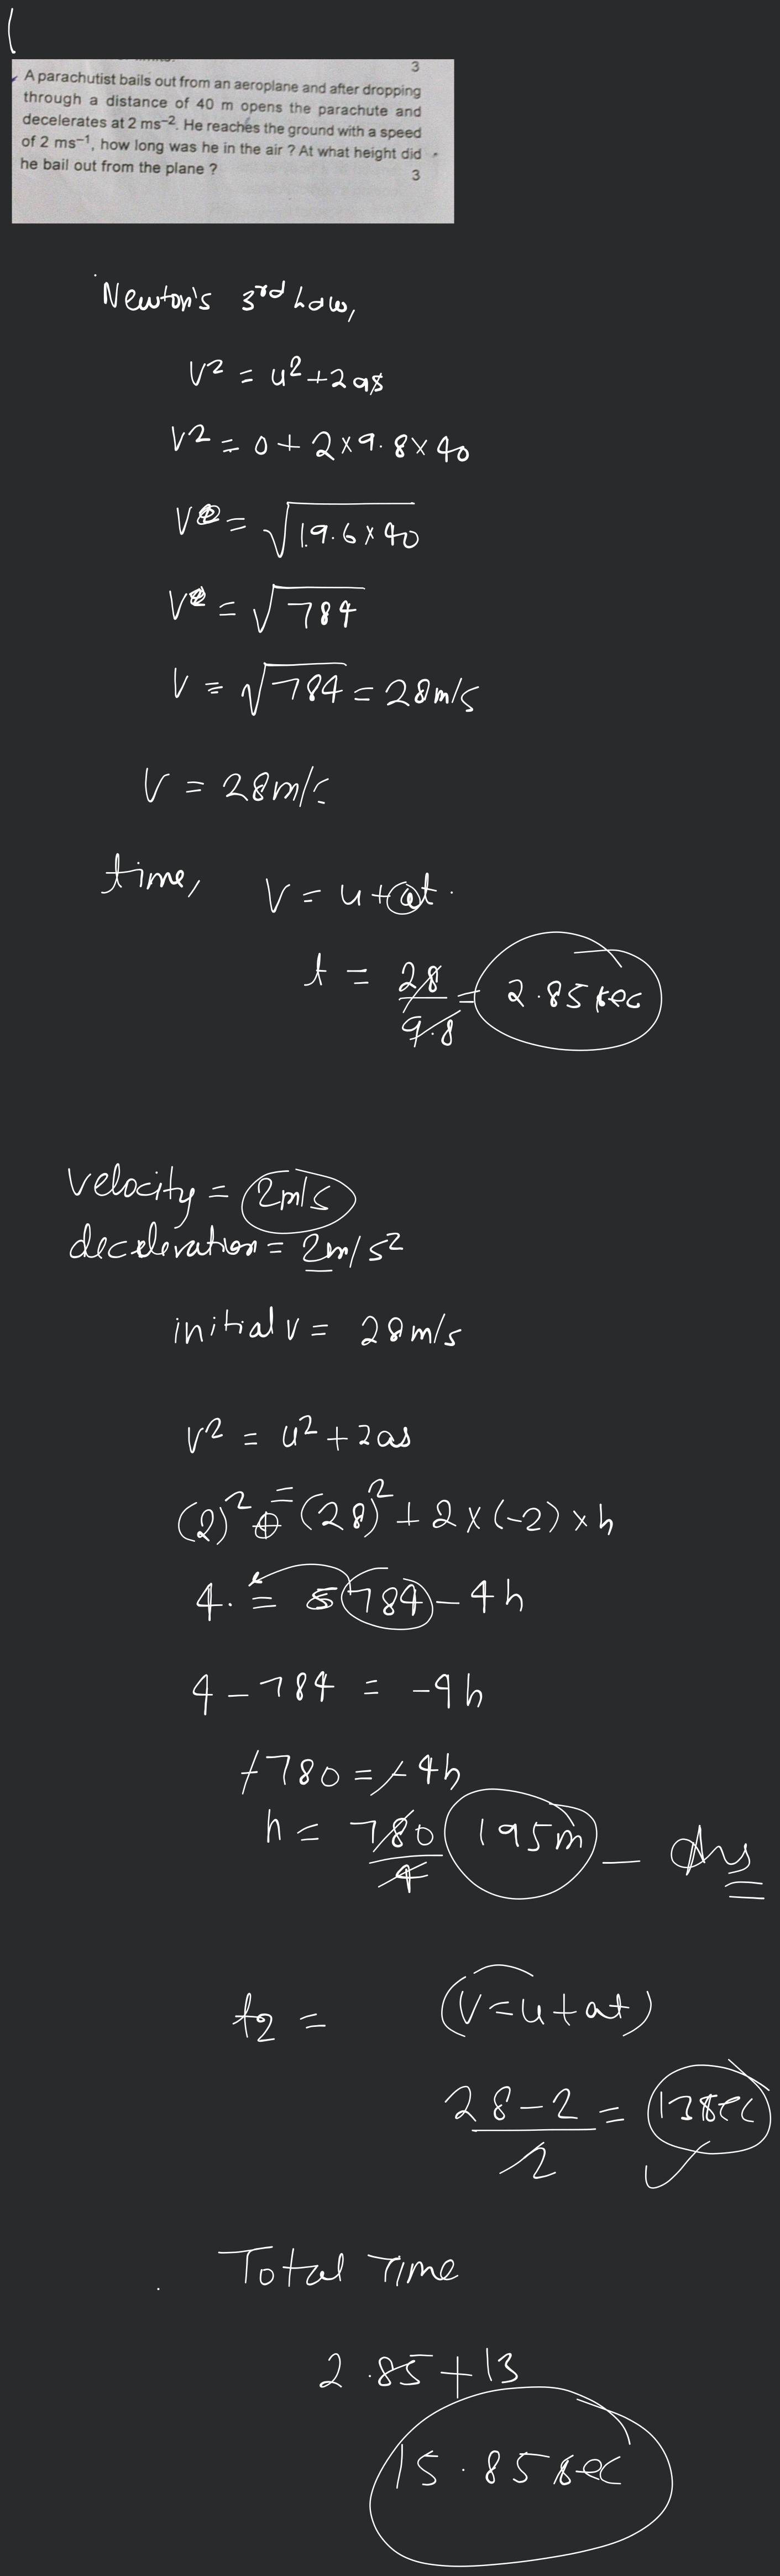 (
3
A parachutist bails out from an aeroplane and after dropping
through a distance of 40 m opens the parachute and
decelerates at 2 ms⁻². He reaches the ground with a speed
of 2 ms⁻¹, how long was he in the air ? At what height did
he bail out from the plane ?
3
Newton's 3rd Law,
V² = u² + 2as
V² = 0 + 2 × 9.8 × 40
V = √19.6 × 40
V = √784
V = √784 = 28m/s
V = 28m/s
time, V = u + at.
t = 28/9.8 = 2.85 sec
velocity = 2m/s
deceleration = 2m/s²
initial v = 28m/s
v² = u² + 2as
(2)² = (28)² + 2 × (-2) × h
4. = 784 - 4h
4 - 784 = -4h
-780 = -4h
h = 780/4 195m - Ans
t₂ = (V = u + at)
28 - 2 / 2 = 13sec
Total Time
2.85 + 13
15.85 sec